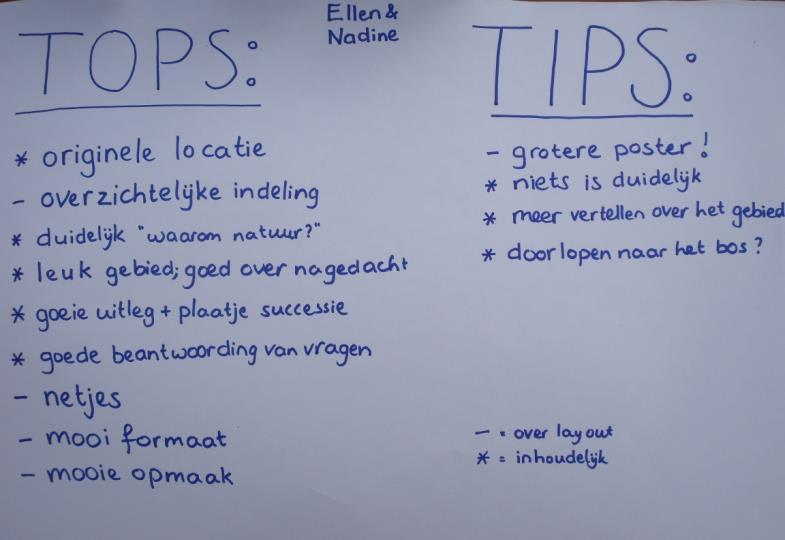 Ellen &
Nadine
TOPS:
* originele locatie
- overzichtelijke indeling
* duidelijk "waarom natuur?"
* leuk gebied; goed over nagedacht
* goeie uitleg + plaatje successie
* goede beantwoording van vragen
- netjes
- mooi formaat
- mooie opmaak
TIPS:
- grotere poster!
* niets is duidelijk
* meer vertellen over het gebied
* doorlopen naar het bos?
- = over layout
* = inhoudelijk